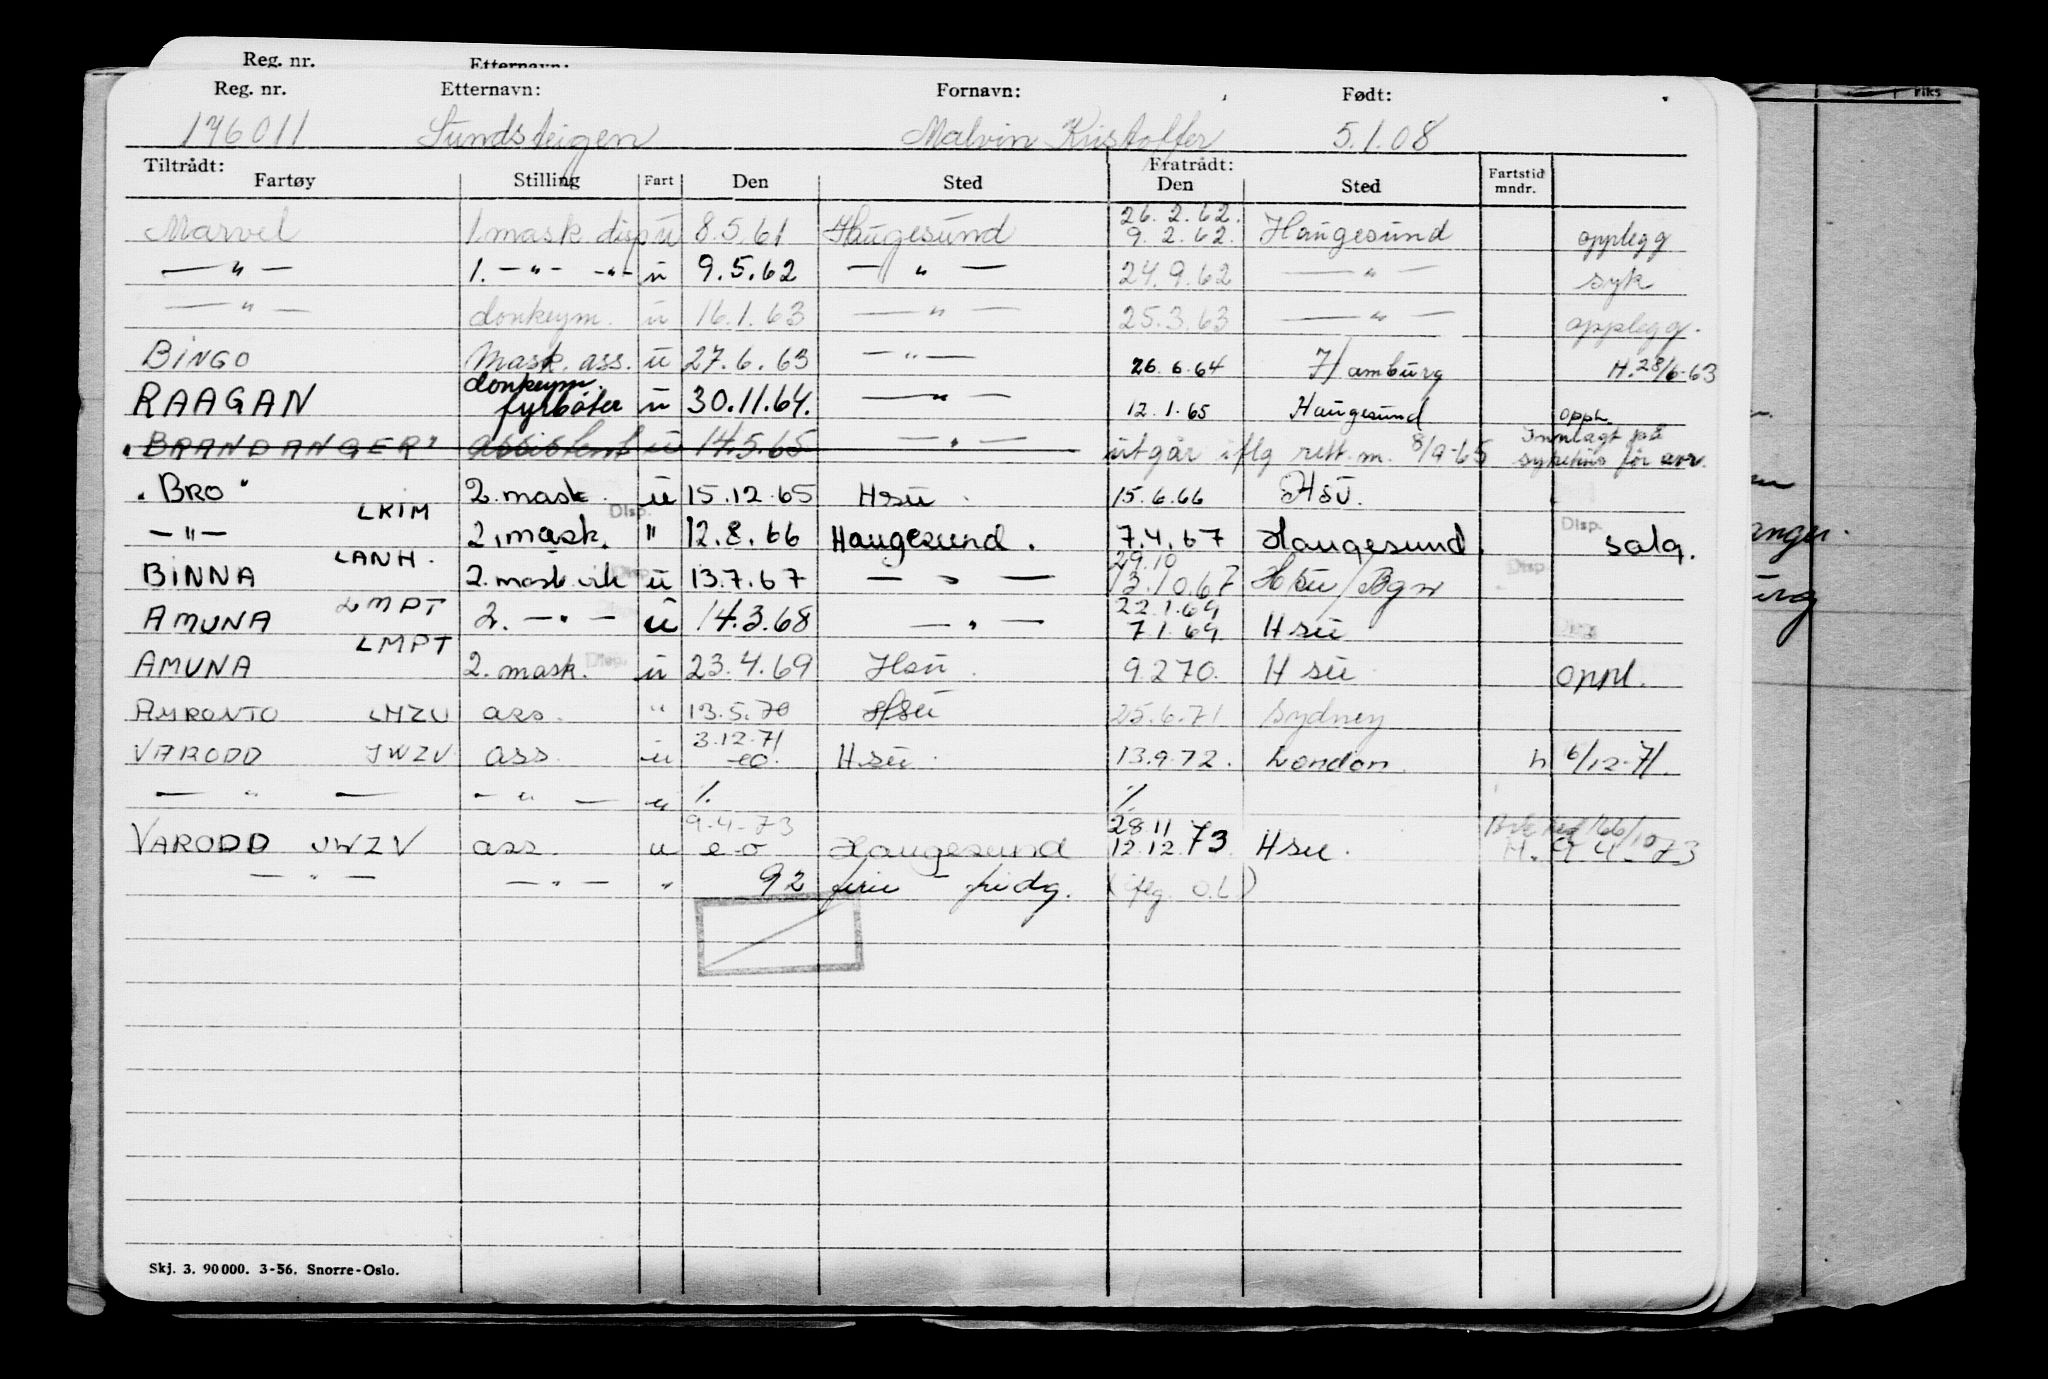 Reg. nr. Etternavn:
Reg. nr. Etternavn: Fornavn: Født:
196011 Sundsteigen Malvin Kristoffer 5.1.08
Tiltrådt: Fratrådt:
Fartøy Stilling Fart Den Sted Den Sted Fartstid mndr.
Marvel 1. mask. disp u 8.5.61 Haugesund 26.2.62. 9.2.62. Haugesund opplegg
—"— 1. -"- -"- u 9.5.62 — " — 24.9.62 —"— syk
—"— donkeym. u 16.1.63 —"— 25.3.63 —"— opplegg.
BINGO Mask. ass. u 27.6.63 —"— 26.6.64 Hamburg H. 28/6-63
RAAGAN donkeym. fyrbøter u 30.11.64. —"— 12.1.65 Haugesund oppl.
"BRANDANGER" assistent u 14.5.65 —"— utgår iflg rett. m. 8/9-65 Innlagt på sykehus før avr.
"BRO" 2. mask. u 15.12.65 Hsu. 15.6.66 Hsu.
—"— LKIM 2. mask. Disp. " 12.8.66 Haugesund. 7.4.67 Haugesund. Disp. salg.
BINNA LANH. 2. mask. vik u 13.7.67 — " — 29.10 13.10.67 Hsu/Bgn Disp.
AMUNA LMPT 2. —"— u 14.3.68 —"— 22.1.69 7.1.69. Hsu
AMUNA LMPT 2. mask. Disp. u 23.4.69 Hsu. 9.2.70. Hsu. oppl.
AMRONTO LMZU ass. " 13.5.70 Hsu 25.6.71 Sydney
VARODD JWZV ass. u 3.12.71 eo. Hsu. 13.9.72. London. h 6/12-71.
— " — — " — u %. %.
VARODD JWZV ass. u 9.4-73 e-o Haugesund 28.11 12.12.73 Hsu. H. 9.4-73
—"— —"— " 92 ferie - fridg. (iflg. o.l.)
Skj. 3. 90 000. 3-56. Snorre-Oslo.